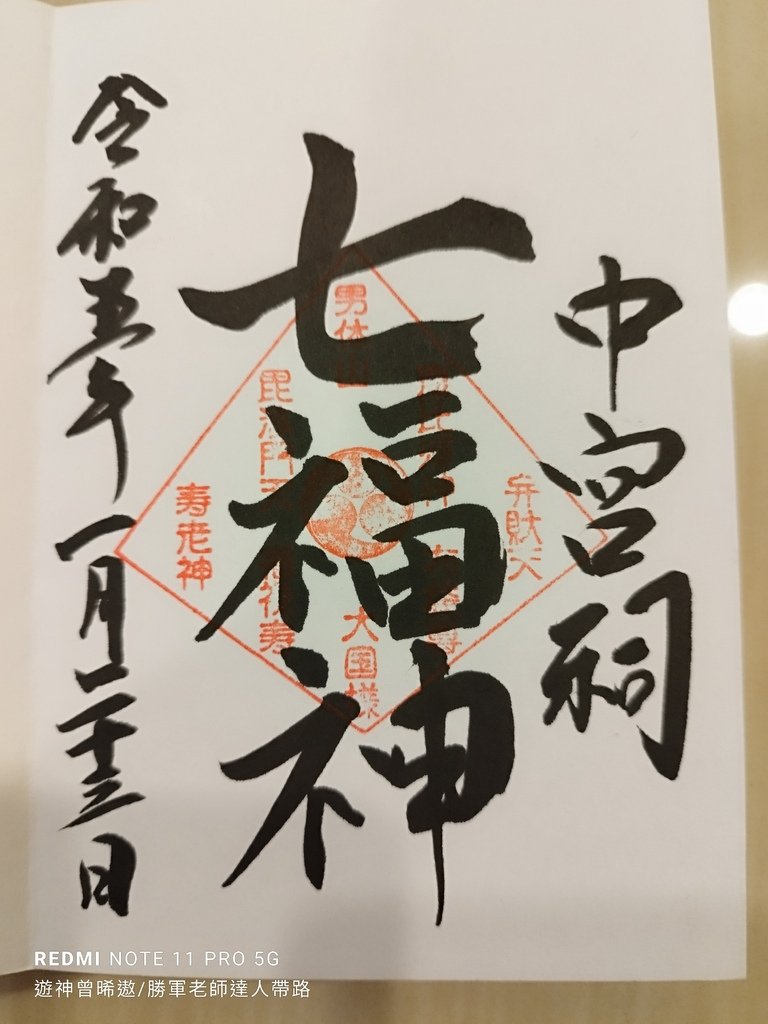 中宮祠
七福神
令和五年 一月二十三日
弁財天
大国様
寿老神
REDMI NOTE 11 PRO 5G
遊神曾晞遨/勝軍老師達人帶路